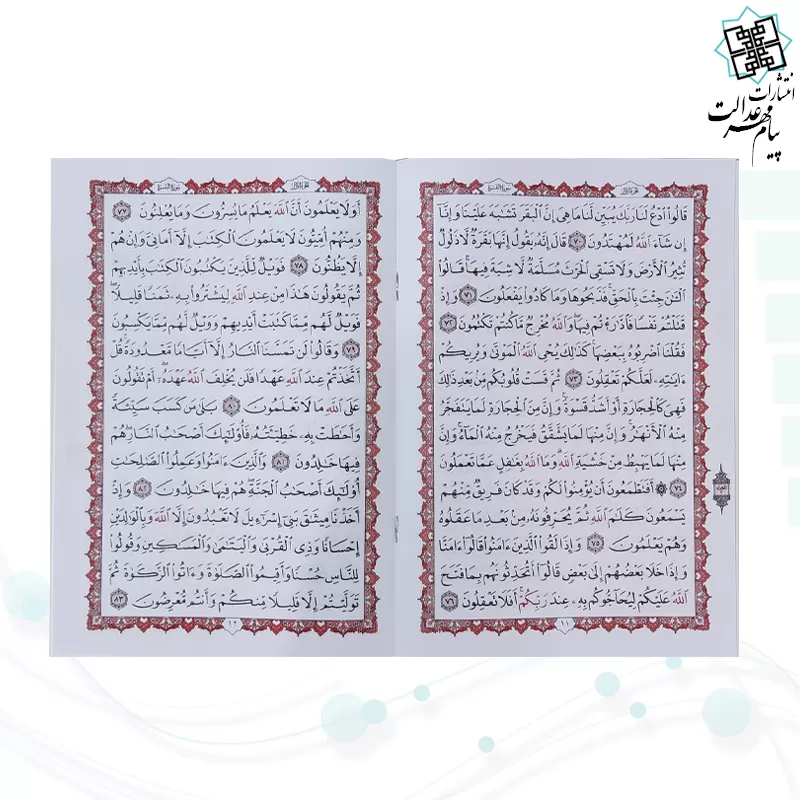 انتشارات
پیام مهر عدالت
الجزء الأول
سورة البقرة
قَالُوا۟ ٱدْعُ لَنَا رَبَّكَ يُبَيِّن لَّنَا مَا هِىَ إِنَّ ٱلْبَقَرَ تَشَٰبَهَ عَلَيْنَا وَإِنَّآ
إِن شَآءَ ٱللَّهُ لَمُهْتَدُونَ ٧٠ قَالَ إِنَّهُۥ يَقُولُ إِنَّهَا بَقَرَةٌ لَّا ذَلُولٌ
تُثِيرُ ٱلْأَرْضَ وَلَا تَسْقِى ٱلْحَرْثَ مُسَلَّمَةٌ لَّا شِيَةَ فِيهَا ۚ قَالُوا۟
ٱلْـَٰٔنَ جِئْتَ بِٱلْحَقِّ ۚ فَذَبَحُوهَا وَمَا كَادُوا۟ يَفْعَلُونَ ٧١ وَإِذْ
قَتَلْتُمْ نَفْسًا فَٱدَّٰرَْٰٔتُمْ فِيهَا ۖ وَٱللَّهُ مُخْرِجٌ مَّا كُنتُمْ تَكْتُمُونَ ٧٢
فَقُلْنَا ٱضْرِبُوهُ بِبَعْضِهَا ۚ كَذَٰلِكَ يُحْىِ ٱللَّهُ ٱلْمَوْتَىٰ وَيُرِيكُمْ
ءَايَٰتِهِۦ لَعَلَّكُمْ تَعْقِلُونَ ٧٣ ثُمَّ قَسَتْ قُلُوبُكُم مِّنۢ بَعْدِ ذَٰلِكَ
فَهِىَ كَٱلْحِجَارَةِ أَوْ أَشَدُّ قَسْوَةً ۚ وَإِنَّ مِنَ ٱلْحِجَارَةِ لَمَا يَتَفَجَّرُ
مِنْهُ ٱلْأَنْهَٰرُ ۚ وَإِنَّ مِنْهَا لَمَا يَشَّقَّقُ فَيَخْرُجُ مِنْهُ ٱلْمَآءُ ۚ وَإِنَّ
مِنْهَا لَمَا يَهْبِطُ مِنْ خَشْيَةِ ٱللَّهِ ۗ وَمَا ٱللَّهُ بِغَٰفِلٍ عَمَّا تَعْمَلُونَ
٧٤ ۞ أَفَتَطْمَعُونَ أَن يُؤْمِنُوا۟ لَكُمْ وَقَدْ كَانَ فَرِيقٌ مِّنْهُمْ
يَسْمَعُونَ كَلَٰمَ ٱللَّهِ ثُمَّ يُحَرِّفُونَهُۥ مِنۢ بَعْدِ مَا عَقَلُوهُ
وَهُمْ يَعْلَمُونَ ٧٥ وَإِذَا لَقُوا۟ ٱلَّذِينَ ءَامَنُوا۟ قَالُوٓا۟ ءَامَنَّا
وَإِذَا خَلَا بَعْضُهُمْ إِلَىٰ بَعْضٍ قَالُوٓا۟ أَتُحَدِّثُونَهُم بِمَا فَتَحَ
ٱللَّهُ عَلَيْكُمْ لِيُحَآجُّوكُم بِهِۦ عِندَ رَبِّكُمْ ۚ أَفَلَا تَعْقِلُونَ ٧٦
١١
الجزء الأول
سورة البقرة
أَوَلَا يَعْلَمُونَ أَنَّ ٱللَّهَ يَعْلَمُ مَا يُسِرُّونَ وَمَا يُعْلِنُونَ ٧٧
وَمِنْهُمْ أُمِّيُّونَ لَا يَعْلَمُونَ ٱلْكِتَٰبَ إِلَّآ أَمَانِىَّ وَإِنْ هُمْ
إِلَّا يَظُنُّونَ ٧٨ فَوَيْلٌ لِّلَّذِينَ يَكْتُبُونَ ٱلْكِتَٰبَ بِأَيْدِيهِمْ
ثُمَّ يَقُولُونَ هَٰذَا مِنْ عِندِ ٱللَّهِ لِيَشْتَرُوا۟ بِهِۦ ثَمَنًا قَلِيلًا ۖ
فَوَيْلٌ لَّهُم مِّمَّا كَتَبَتْ أَيْدِيهِمْ وَوَيْلٌ لَّهُم مِّمَّا يَكْسِبُونَ
٧٩ وَقَالُوا۟ لَن تَمَسَّنَا ٱلنَّارُ إِلَّآ أَيَّامًا مَّعْدُودَةً ۚ قُلْ
أَتَّخَذْتُمْ عِندَ ٱللَّهِ عَهْدًا فَلَن يُخْلِفَ ٱللَّهُ عَهْدَهُۥٓ ۖ أَمْ تَقُولُونَ
عَلَى ٱللَّهِ مَا لَا تَعْلَمُونَ ٨٠ بَلَىٰ مَن كَسَبَ سَيِّئَةً
وَأَحَٰطَتْ بِهِۦ خَطِيٓـَٔتُهُۥ فَأُو۟لَٰٓئِكَ أَصْحَٰبُ ٱلنَّارِ ۖ هُمْ
فِيهَا خَٰلِدُونَ ٨١ وَٱلَّذِينَ ءَامَنُوا۟ وَعَمِلُوا۟ ٱلصَّٰلِحَٰتِ
أُو۟لَٰٓئِكَ أَصْحَٰبُ ٱلْجَنَّةِ ۖ هُمْ فِيهَا خَٰلِدُونَ ٨٢ وَإِذْ
أَخَذْنَا مِيثَٰقَ بَنِىٓ إِسْرَٰٓءِيلَ لَا تَعْبُدُونَ إِلَّا ٱللَّهَ وَبِٱلْوَٰلِدَيْنِ
إِحْسَانًا وَذِى ٱلْقُرْبَىٰ وَٱلْيَتَٰمَىٰ وَٱلْمَسَٰكِينِ وَقُولُوا۟
لِلنَّاسِ حُسْنًا وَأَقِيمُوا۟ ٱلصَّلَوٰةَ وَءَاتُوا۟ ٱلزَّكَوٰةَ ثُمَّ
تَوَلَّيْتُمْ إِلَّا قَلِيلًا مِّنكُمْ وَأَنتُم مُّعْرِضُونَ ٨٣
١٢